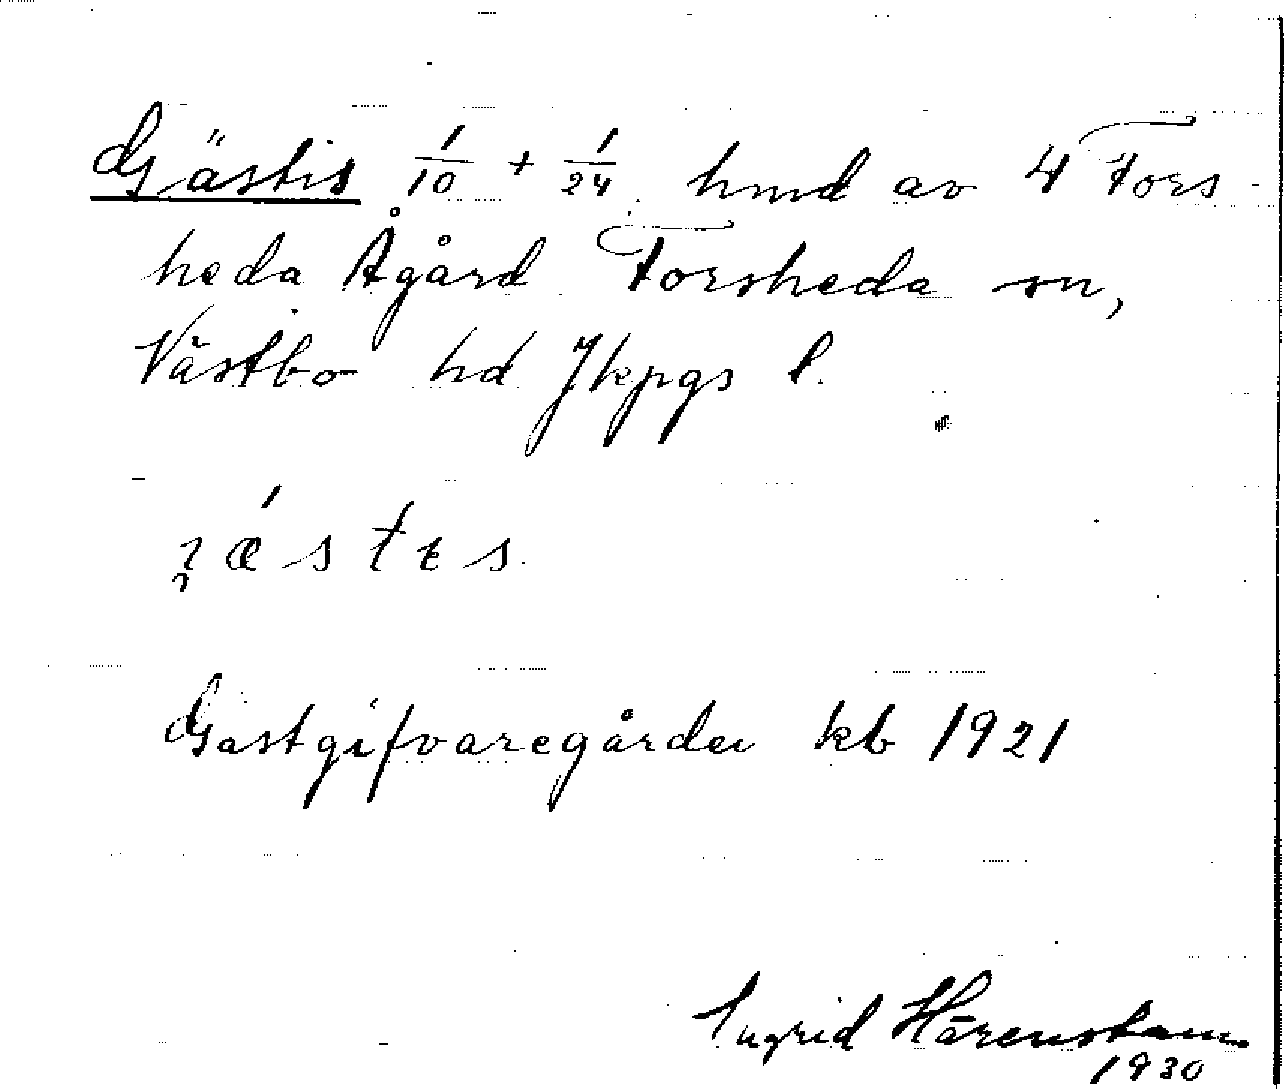 Gästis 1/10 + 1/24 hmd av 4 Fors-
heda Ågård Forsheda sn,
Västbo hd Jkpgs l.
Gästgifvaregården kb 1921
Ingrid Härenstam
1930